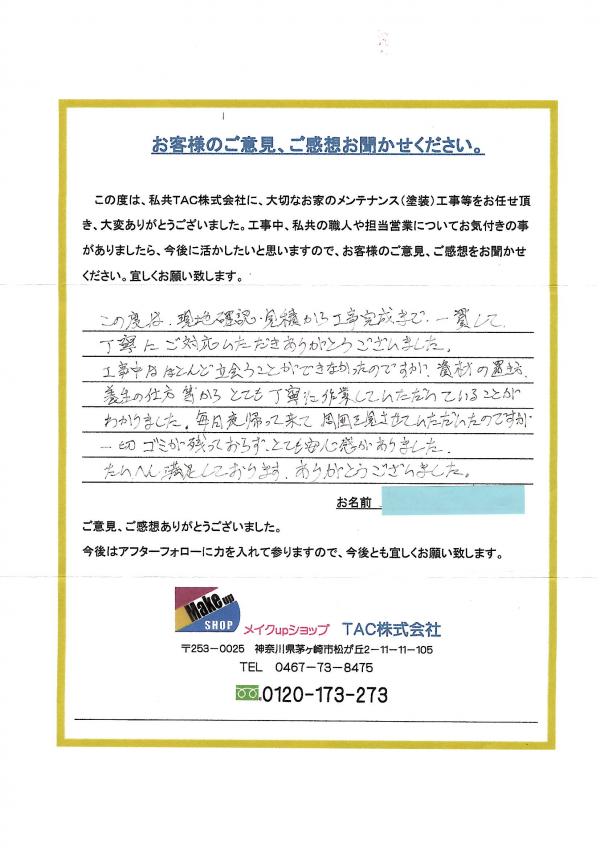 お客様のご意見、ご感想お聞かせください。
この度は、私共TAC株式会社に、大切なお家のメンテナンス（塗装）工事等をお任せ頂
き、大変ありがとうございました。工事中、私共の職人や担当営業についてお気付きの事
がありましたら、今後に活かしたいと思いますので、お客様のご意見、ご感想をお聞かせ
ください。宜しくお願い致します。
この度は、現地確認・見積から工事完成まで、一貫して、
丁寧にご対応いただきありがとうございました。
工事中はほとんど立会うことができなかったのですが、資材の置き方、
養生の仕方等から とても丁寧に作業していただいていることが
わかりました。毎日夜帰って来て 周囲を見させていただいたのですが
一切ゴミが残っておらず、とても安心感がありました。
たいへん満足しております。ありがとうございました。
お名前
ご意見、ご感想ありがとうございました。
今後はアフターフォローに力を入れて参りますので、今後とも宜しくお願い致します。
Make up
SHOP
メイクupショップ TAC株式会社
〒253-0025 神奈川県茅ヶ崎市松が丘2-11-11-105
TEL 0467-73-8475
0120-173-273